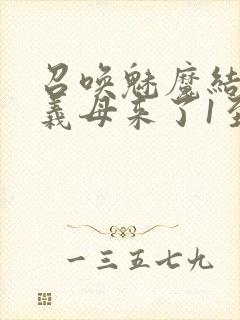 召唤魅魔结
义母来了1至
一三五七九